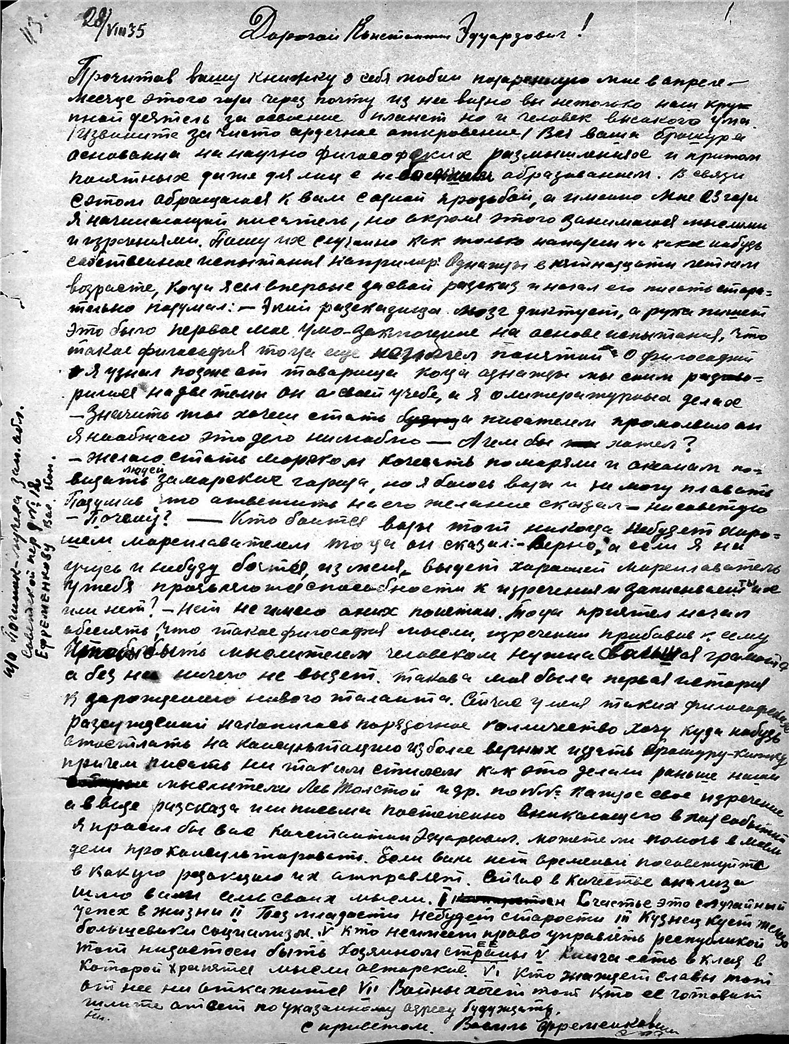 113.
28/VIII 35
Дорогой Константин Эдуардович!
Прочитав вашу книжку о себя любии подаренную мне в апреле-
месяце этого года через почту из нее видно вы нетолько наш круп
пной деятель за освоение планет но и человек высокого ума
/извините за чисто срдечное откровение/ Вся ваша брошура
основанна на научно философских размышлениях и притом
понятных даже для лиц с не образованием. В связи
с этом обращаюся к вам с одной прозьбой, а именно мне 23 года
я начинающий писатель, но окроля этого занимаюся мыслими
и изречниями. Пишу их случайно как только нападеш на какое нибудь
собственное испытания например: Однажды в пятнадцати летним
возрасте, когда я сел впервые за свой расказ и начал его писать стара-
тельно подумал: - Экий разсказища. Мозг диктует, а рука пишет
это было первое мое умо-заключение на основе испытания, что
такое философия тогда еще не имел понятий. О философии
я узнал позже от товарища когда однажды мы сним разгово-
рилися на две темы он о своей учебе, а я о литературных делах
- Значить ты хочеш стать писателем промолвил он
Я наобжаю это дело нилюблю — А чем бы хотел?
- желаю стать моряком качесть по марям и океанам по-
людей
видать заморские города, но я боюсь воды и ни могу плавать
Подумав что ответить на его желание сказал - нисоветую
- Почему? — Кто боится воды тот никогда небудет харо-
шем мореплавателем тогда он сказал: - Верно, а если я на
учусь и нибуду бояться, из меня выдет хароший мореплаватель
У тебя проявляются способности к изречения и записываеш ты их
или нет? - Нет не имею о них понятия. Тогда приятел начал
обяснять что такое философия мысли, изречении прибавив: - сему
быть мыслителем человеком нужна большая грамота
а без ни ничего не выдет. такова моя была первая история
к зарождению нового таланта. Сичас у меня таких философских
разсуждений накопилась порядочное колличество хочу куда нибудь
отостлать на консультацию из более верных издать брошуру-книжку
причем писать ни таким стилем как это делали раньше наши
мыслители Лев Толстой и др. по №№ каждое свое изречение
а в виде разсказа или письма постепенно вникающего в ход событий
Я просил бы вас Констаттин Эдуардович. можете ли помочь в моем
дели проконсультировать. Если вам нет времени посоветуйте
в какую редакцию их отправлят. Сичас в качестве анализа
шлю вам семь своих мысли. I Счастье это случайный
успех в жизни II Без младости небудет старости III Кузнец кует железо
большевики социализм. V Кто неимеет право управлять республикой
ЕЁ
тот нидостоен быть хозяином страны V Книга есть вклад в
которой хранятся мысли авторские. VI Кто жаждет славы тот
от нее ни откажится VII Войны хочет тот кто ее готовит
шлите ответ по указанному адресу будужздать.
с приветом. Василь Ефременков
п/о Починок-Кучера зап. обл.
Советской пер д №12
Ефременкову Вас. Ник.